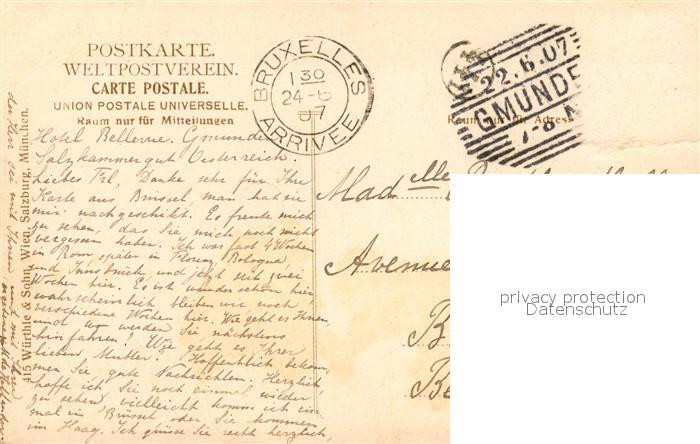 POSTKARTE.
WELTPOSTVEREIN.
CARTE POSTALE.
UNION POSTALE UNIVERSELLE.
Raum nur für Mitteilungen
BRUXELLES
1 30
24-6
07
ARRIVEE
22.6.07
GMUNDE
7-8 N
Raum nur für Adresse
Hotel Bellevue. Gmunden
Salzkammergut Oesterreich.
Liebes Frl, Danke sehr für Ihre
Karte aus Brüssel, man hat sie
mir nachgeschikt. Es freute mich
zu sehen, das Sie mich noch nicht
vergessen haben. Ich war fast 4 Wochen
in Rom, später in Florenz, Bologna,
und Innsbruck, und jetzt seit zwei
Wochen hier. Es ist wunderschön hier
wahrscheinlich bleiben wir noch
verschiedene Wochen hier. Wie geht es Ihnen,
und wo werden Sie nächstens
hinfahren? Wie geht es Ihrer
lieben Mutter. Hoffenthlich bekom
men Sie gute Nachrichten. Herzlich
hoffe ich Sie noch einmal wieder
zu sehen vielleicht komm ich ein
mal in Brüssel oder Sie kommen
im Haag. Ich grüsse Sie recht herzlich,
der Herr sei mit Ihnen und mit Ihrer
Mad elle
Avenue
B
Be
415 Würthle & Sohn, Wien, Salzburg, München.
privacy protection
Datenschutz